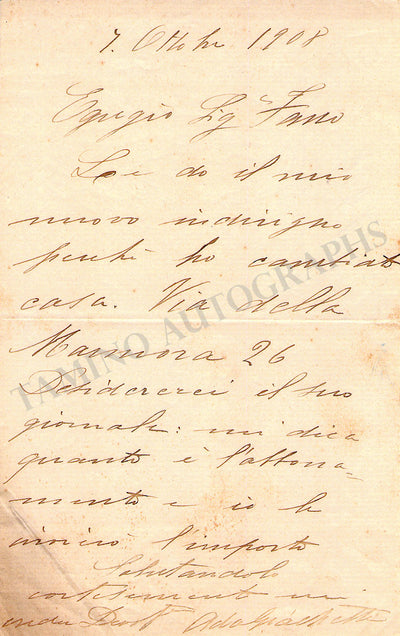 7. Ottobre 1908
Egregio Sigr Fano
Le do il mio
nuovo indirizzo,
perchè ho cambiato
casa. Via della
Marmora 26
Desidererei il suo
giornale: mi dica
quanto è l'abbona-
mento e io le
invierò l'importo
Salutandola
cortesemente mi
Devot
TAMINO AUTOGRAPHS